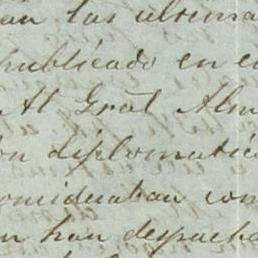 an las ultima
publicado en e
Al Gral Alm
on diplomatic
consideraban com
n han despacha